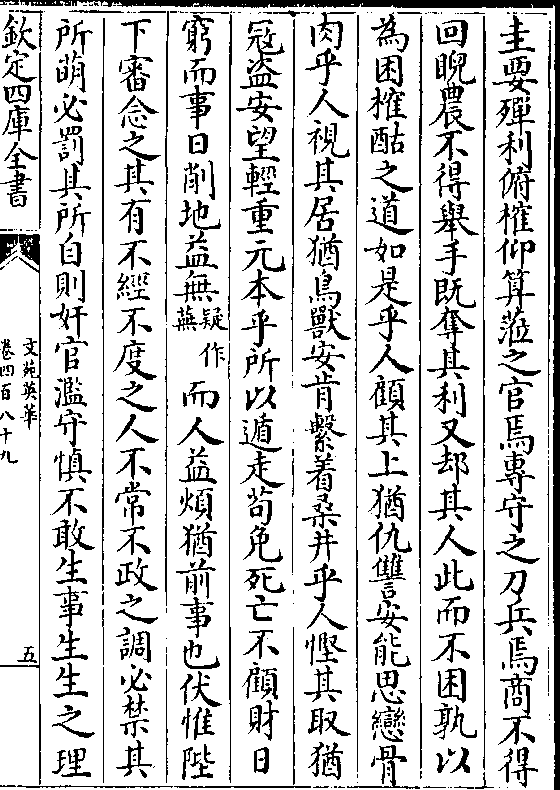 圭要殫利俯榷仰算蒞之官焉專守之刀兵焉商不得
回睨農不得舉手既奪其利又却其人此而不困孰以
為困榷酤之道如是乎人顧其上猶仇讐安能思戀骨
肉乎人視其居猶鳥獸安肯繫着桑井乎人慳其取猶
冦盗安望輕重元本乎所以遁走苟免死亡不顧財日
窮而事日削地益無疑作蕪而人益煩猶前事也伏惟陛
下審念之其有不經不度之人不常不政之調必禁其
所萌必罰其所自則奸官濫守慎不敢生事生生之理
欽定四庫全書
文苑英華
卷四百八十九
五